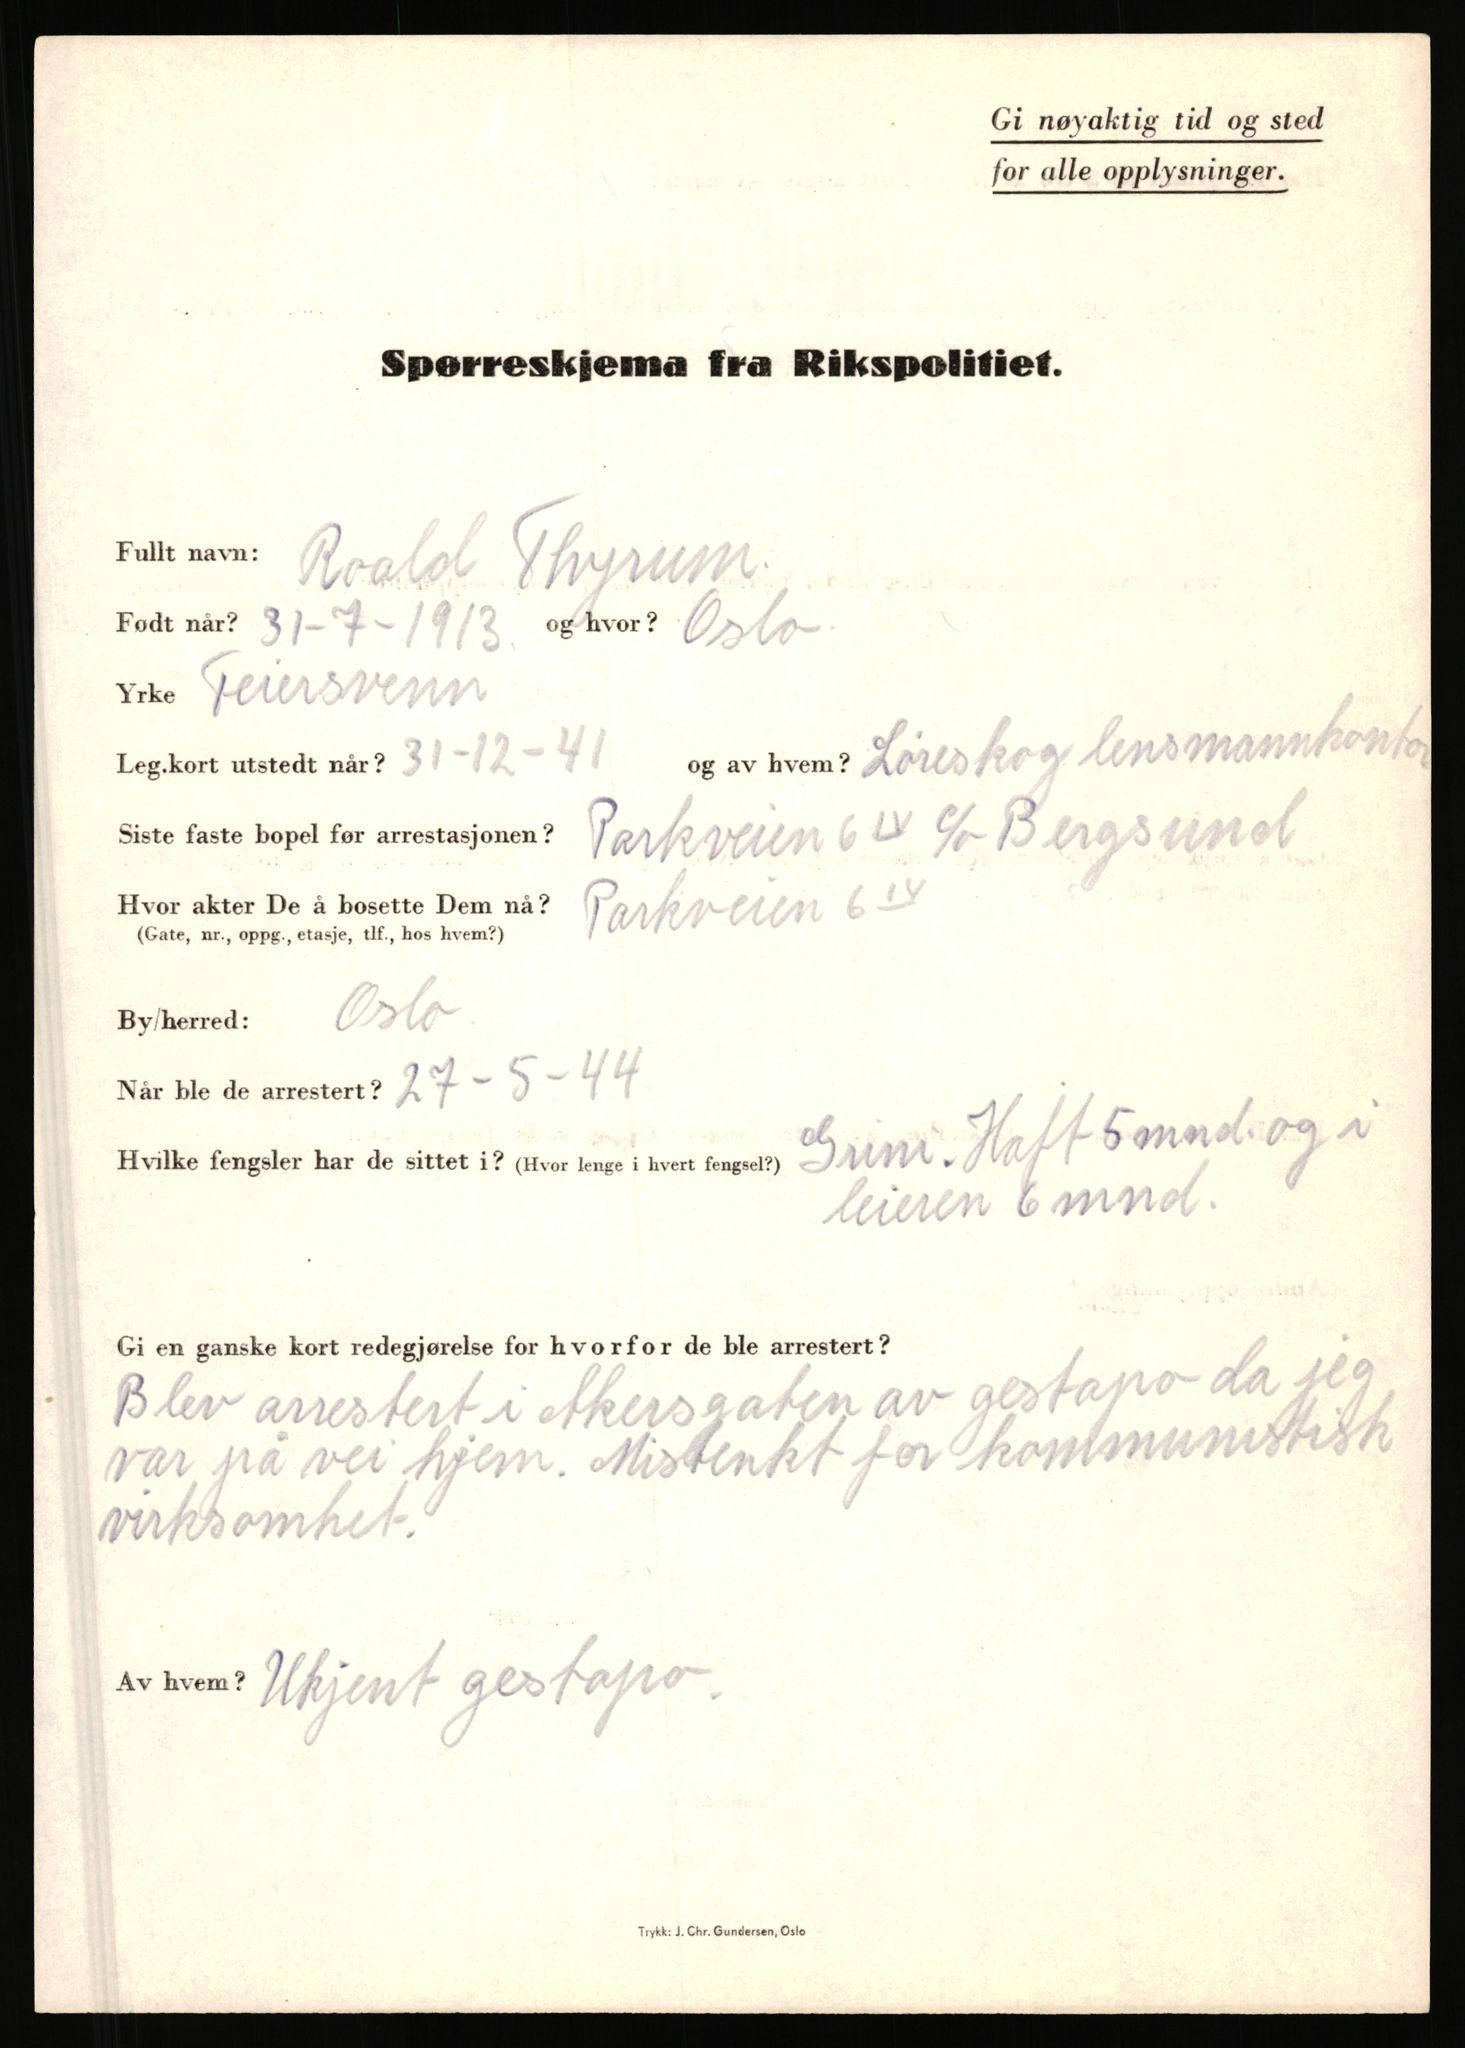 Gi nøyaktig tid og sted
for alle opplysninger.
Spørreskjema fra Rikspolitiet.
Fullt navn: Roald Thyrum.
Født når? 31-7-1913. og hvor? Oslo.
Yrke Feiersvenn
Leg.kort utstedt når? 31-12-41 og av hvem? Löreskog lensmannkontor
Siste faste bopel før arrestasjonen? Parkveien 6 IV c/o Bergsund
Hvor akter De å bosette Dem nå? Parkveien 6 IV
(Gate, nr., oppg., etasje, tlf., hos hvem?)
By/herred: Oslo
Når ble de arrestert? 27-5-44
Hvilke fengsler har de sittet i? (Hvor lenge i hvert fengsel?) Grini. Haft 5 mnd. og i
leieren 6 mnd.
Gi en ganske kort redegjørelse for hvorfor de ble arrestert?
Blev arrestert i Akersgaten av gestapo da jeg
var på vei hjem. Mistenkt for kommunistisk
virksomhet.
Av hvem? Ukjent gestapo.
Trykk: J. Chr. Gundersen, Oslo